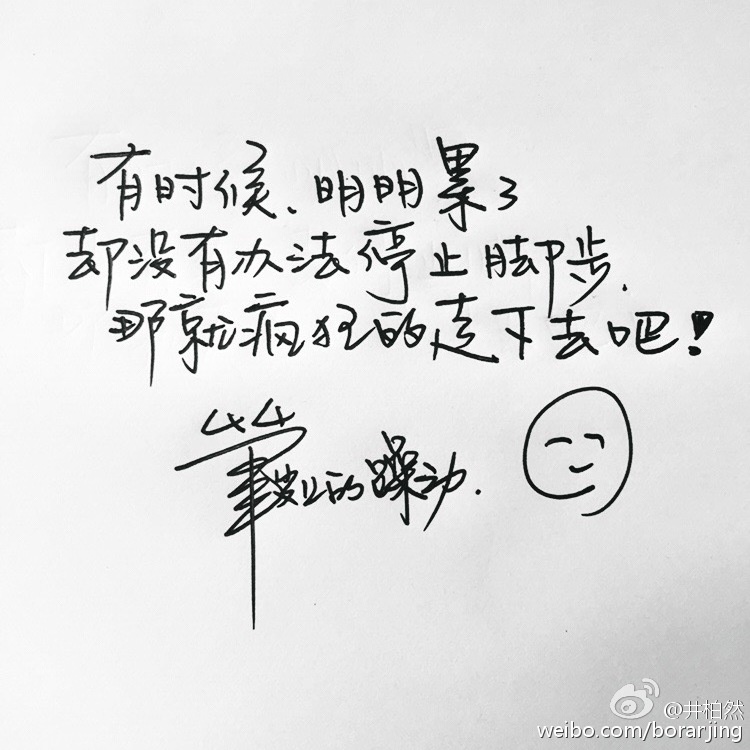 有时候、明明累了
却没有办法停止脚步.
那就疯狂的走下去吧！
笔尖上的躁动.
@井柏然
weibo.com/borarjing